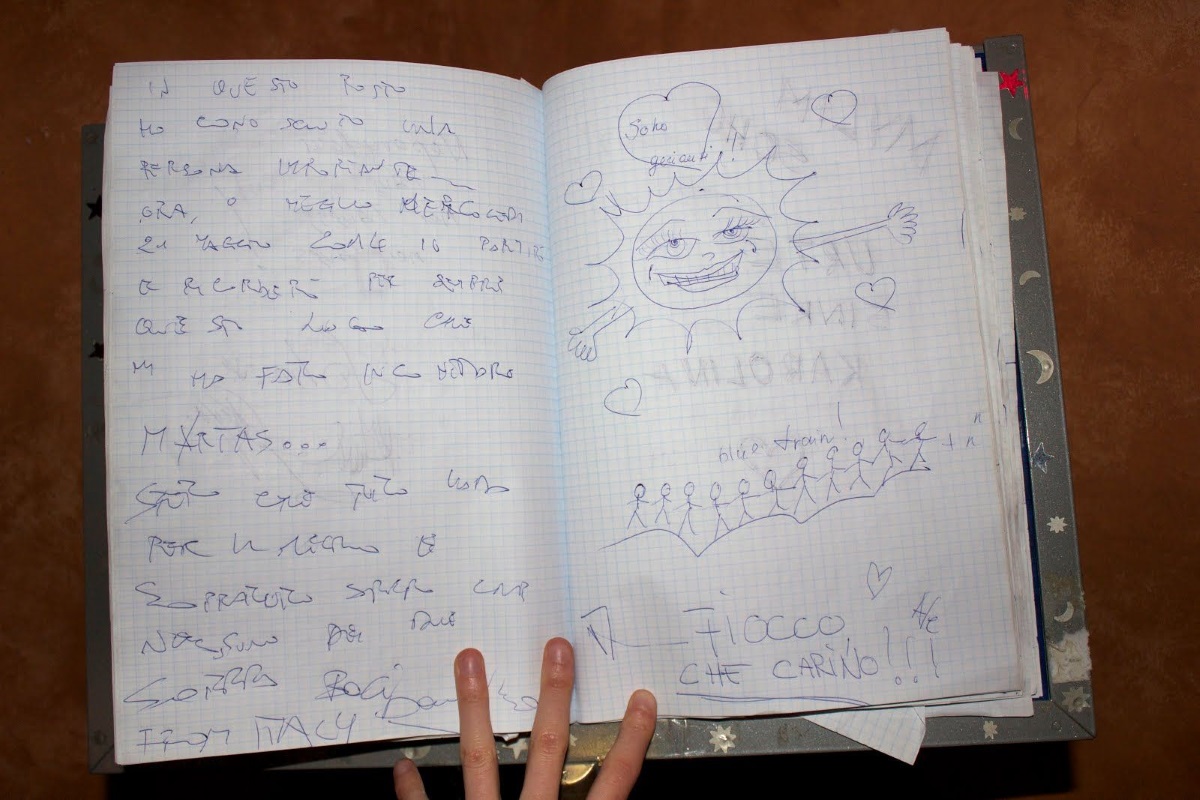 IN QUESTO POSTO
HO CONOSCIUTO UNA
PERSONA
ORA, O MEGLIO MERCOLEDI
21 MAGGIO IO PARTIRO
E RICORDERO PER SEMPRE
QUESTO LUOGO CHE
MI HA FATTO INCONTRARE
MARTAS...
SPERO CHE TUTTO VADA
PER IL MEGLIO E
SOPRATUTTO SPERO CHE
NESSUNO DEI DUE
SOFFRA BACI
FROM ITALY
Soho
!!
blue train!
+ n
FIOCCO
CHE CARINO!!!
KAROLINA